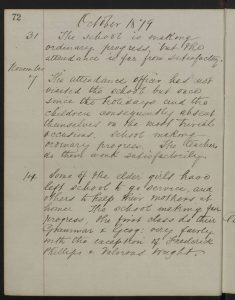 72
October 1879
31 The school is making
ordinary progress, but the
attendance is far from satisfactory.
November
7 The attendance officer has not
visited the school but once
since the holidays and the
children consequently absent
themselves on the most trivial
occasions. School making
ordinary progress. The teachers
do their work satisfactorily.
14 Some of the elder girls have
left school to go service, and
others to help their mothers at
home. The school making fair
progress, the first class do their
Grammar & Geog: very fairly
with the exception of Frederick
Phillips &